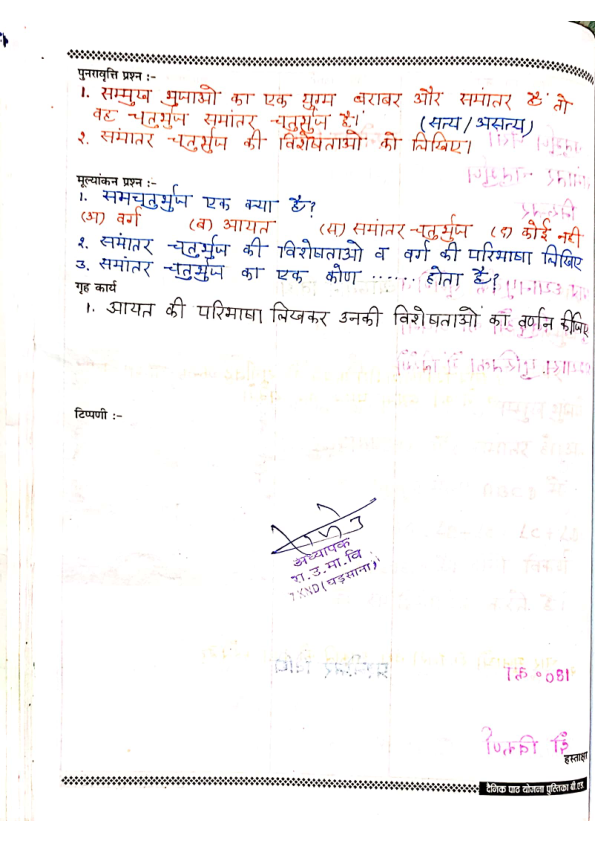 पुनरावृत्ति प्रश्न :-
1. सम्मुख भुजाओ का एक युग्म बराबर और समांतर है तो
वह चतुर्भुज समांतर चतुर्भुज है। (सत्य/असत्य)
२. समांतर चतुर्भुज की विशेषताओ को लिखिए।
मूल्यांकन प्रश्न :-
1. समचतुर्भुज एक क्या है?
(अ) वर्ग (ब) आयत (स) समांतर चतुर्भुज (द) कोई नही
२. समांतर चतुर्भुज की विशेषताओ व वर्ग की परिभाषा लिखिए
3. समांतर चतुर्भुज का एक कोण ...... होता है?
गृह कार्य
1. आयत की परिभाषा लिखकर उनकी विशेषताओं का वर्णन कीजिए
टिप्पणी :-
अध्यापक
रा.उ.मा.वि
7 KND (घड़साना)
हस्ताक्ष
दैनिक पाठ योजना पुस्तिका बी.एड.